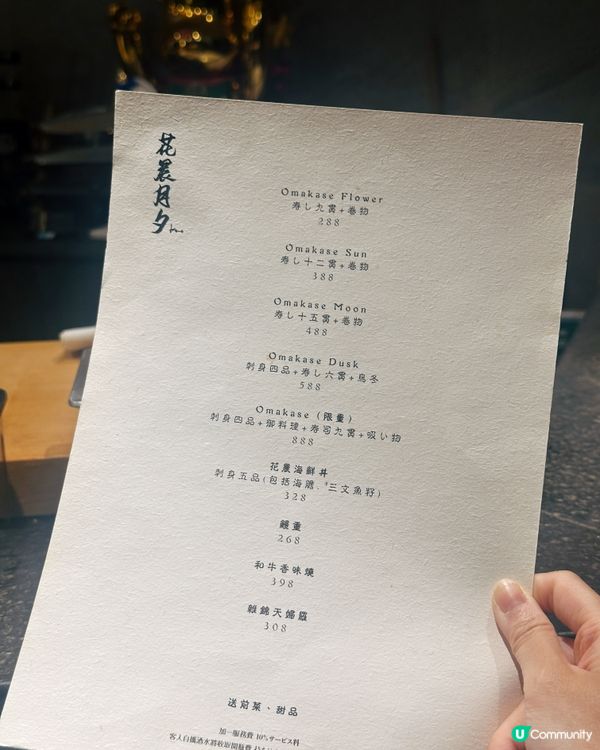 花晨月夕
Omakase Flower
寿し九貫+卷物
288
Omakase Sun
寿し十二貫+卷物
388
Omakase Moon
寿し十五貫+卷物
488
Omakase Dusk
刺身四品+寿し六貫+烏冬
588
Omakase (限量)
刺身四品+御料理+寿司九貫+吸い物
888
花晨海鮮丼
刺身五品(包括海膽、三文魚籽)
328
鰻重
268
和牛香味燒
398
雜錦天婦羅
308
送前菜、甜品
加一服務費 10%サービス料
客人自攜酒水將收取開瓶費
U Community